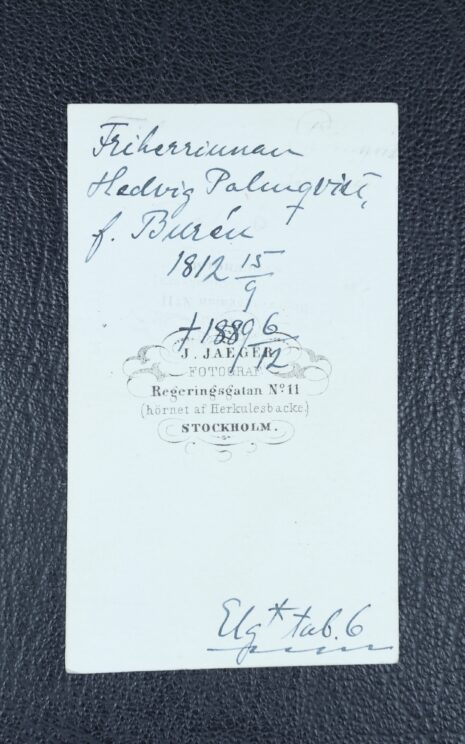 Friherrinnan
Hedvig Palmqvist,
f. Burén
1812 15/9
† 1889 6/12
J. JAEGER
FOTOGRAF
Regeringsgatan No 11
(hörnet af Herkulesbacke.)
STOCKHOLM.
Elg* tab. 6